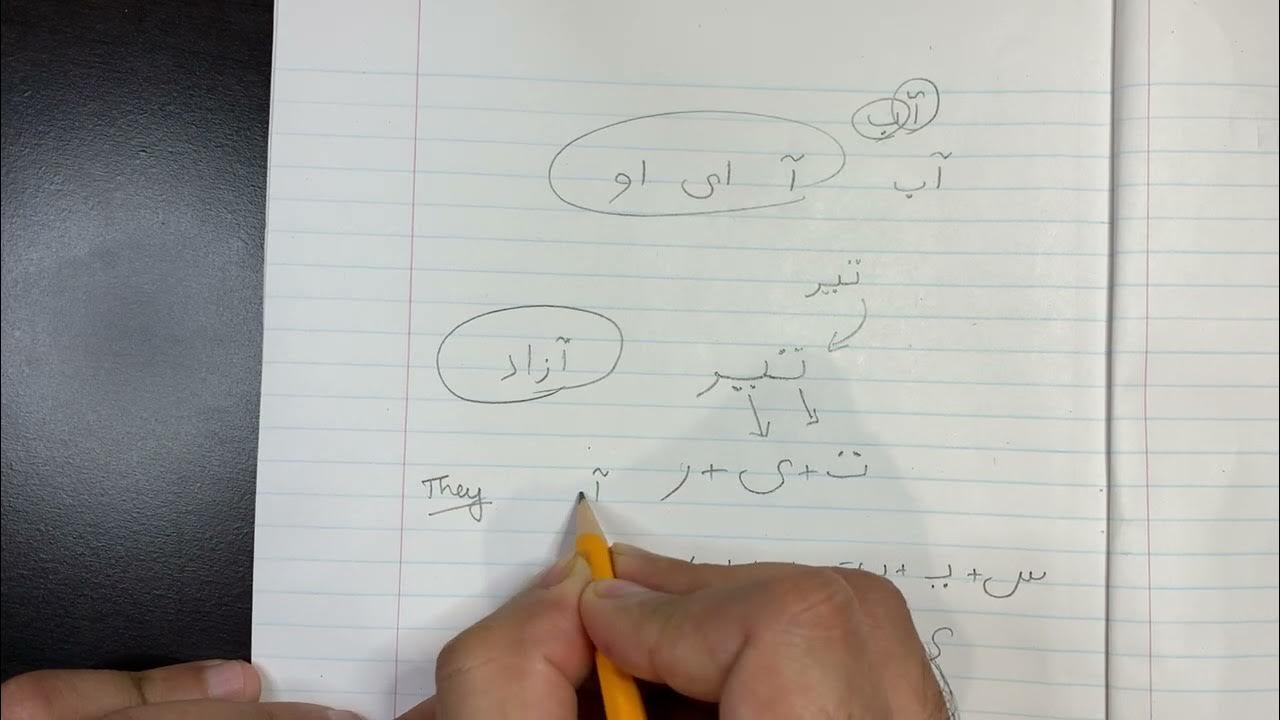 آب
آ ای او
آب
تیر
آزاد
تیر
They
آ
ت + ی + ر
س + ب +